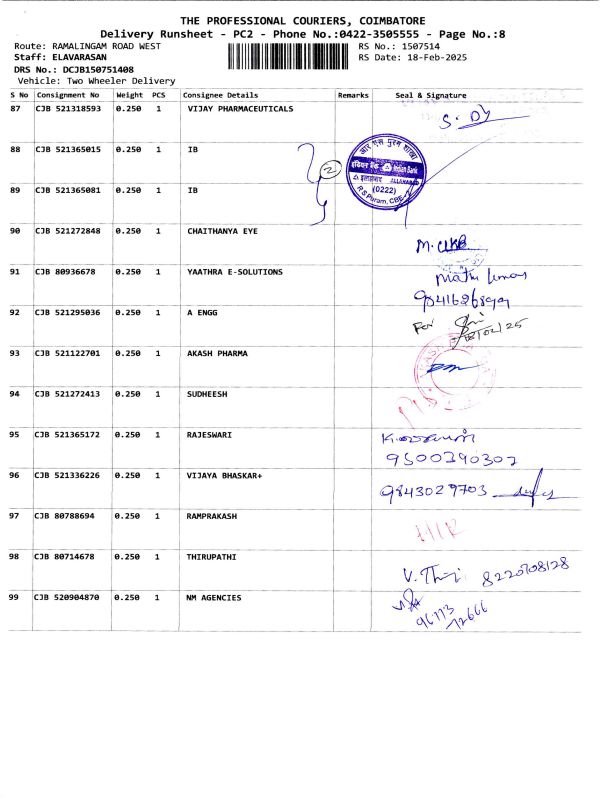 THE PROFESSIONAL COURIERS, COIMBATORE
Delivery Runsheet - PC2 - Phone No.:0422-3505555 - Page No.:8
Route: RAMALINGAM ROAD WEST
RS No.: 1507514
Staff: ELAVARASAN
RS Date: 18-Feb-2025
DRS No.: DCJB150751408
Vehicle: Two Wheeler Delivery
S No Consignment No Weight PCS Consignee Details Remarks Seal & Signature
87 CJB 521318593 0.250 1 VIJAY PHARMACEUTICALS
88 CJB 521365015 0.250 1 IB
2
आर एस पुरम शाखा
इंडियन बैंक Indian Bank
इलाहाबाद ALLAHABAD
(0222)
R S Puram, CBE-2
89 CJB 521365081 0.250 1 IB
90 CJB 521272848 0.250 1 CHAITHANYA EYE
91 CJB 80936678 0.250 1 YAATHRA E-SOLUTIONS
92 CJB 521295036 0.250 1 A ENGG
For
93 CJB 521122701 0.250 1 AKASH PHARMA
94 CJB 521272413 0.250 1 SUDHEESH
95 CJB 521365172 0.250 1 RAJESWARI
9500390302
96 CJB 521336226 0.250 1 VIJAYA BHASKAR+
9843029703
97 CJB 80788694 0.250 1 RAMPRAKASH
98 CJB 80714678 0.250 1 THIRUPATHI
8220708128
99 CJB 520904870 0.250 1 NM AGENCIES
96113
72666